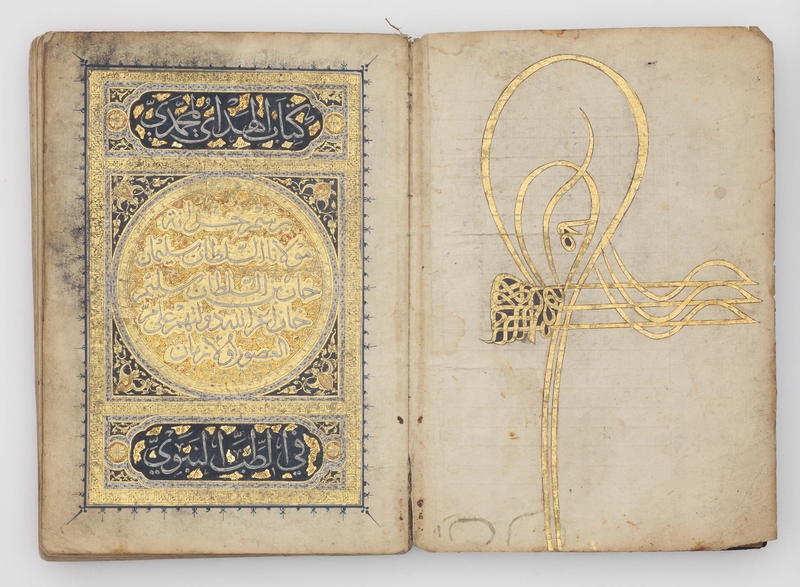 كتاب الهدي المحمدي
برسم خزانة
مولانا السلطان سليمان
خان بن السلطان سليم
خان اعز الله دولته
العصور والازمان
في الطب النبوي